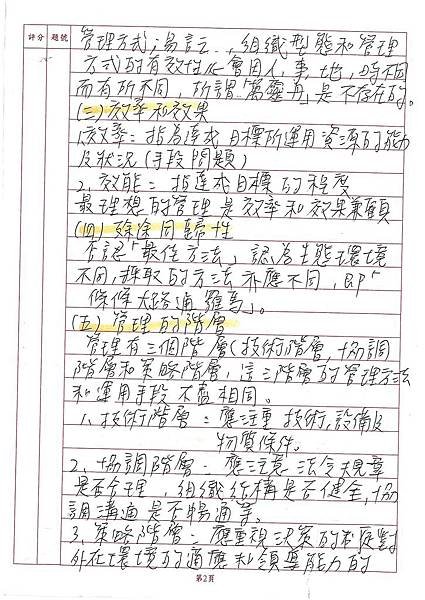 評分 題號
管理方式;易言之,組織型態和管理
方式的有效性會因人,事,地,時不同
而有所不同,所謂「萬靈丹」是不存在的。
(三)效率和效果
1.效率:指為達成目標所運用資源的能力
及狀況(手段問題)
2.效能:指達成目標的程度
最理想的管理是效率和效果兼顧
(四)殊途同歸性
否認「最佳方法」認為生態環境
不同,採取的方法亦應不同,即「
條條大路通羅馬」。
(五)管理的階層
管理有三個階層(技術階層,協調
階層和策略階層,這三階層的管理方法
和運用手段不盡相同。
1、技術階層:應注重技術,設備及
物質條件。
2、協調階層:應注意法令規章
是否合理,組織結構是否健全,協
調溝通是否暢通等。
3、策略階層:應重視決策的本質對
外在環境的適應和領導能力的
第2頁